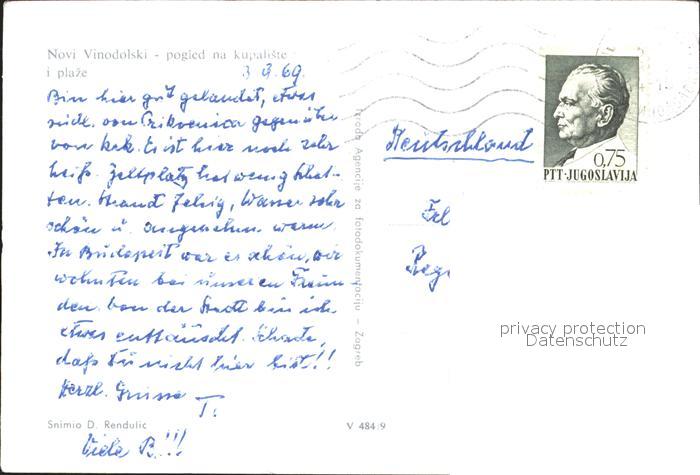 Novi Vinodolski - pogled na kupalište
i plaže
3 9. 69.
Bin hier gut gelandet, etwas
südl. von Crikvenica gegenüber
von Krk. Es ist hier noch sehr
heiß. Zeltplatz hat wenig Schat-
ten. Strand felsig, Wasser sehr
schön u. angenehm warm.
In Budapest war es schön, wir
wohnten bei unseren Freun-
den. Von der Stadt bin ich
etwas enttäuscht. Schade,
daß Du nicht hier bist!!
Herzl. Grüsse
T.
Viele B.!!!
Snimio D. Rendulic
V 484/9
Izrada Agencije za fotodokumentaciju - Zagreb
Deutschland
0,75
PTT·JUGOSLAVIJA
privacy protection
Datenschutz